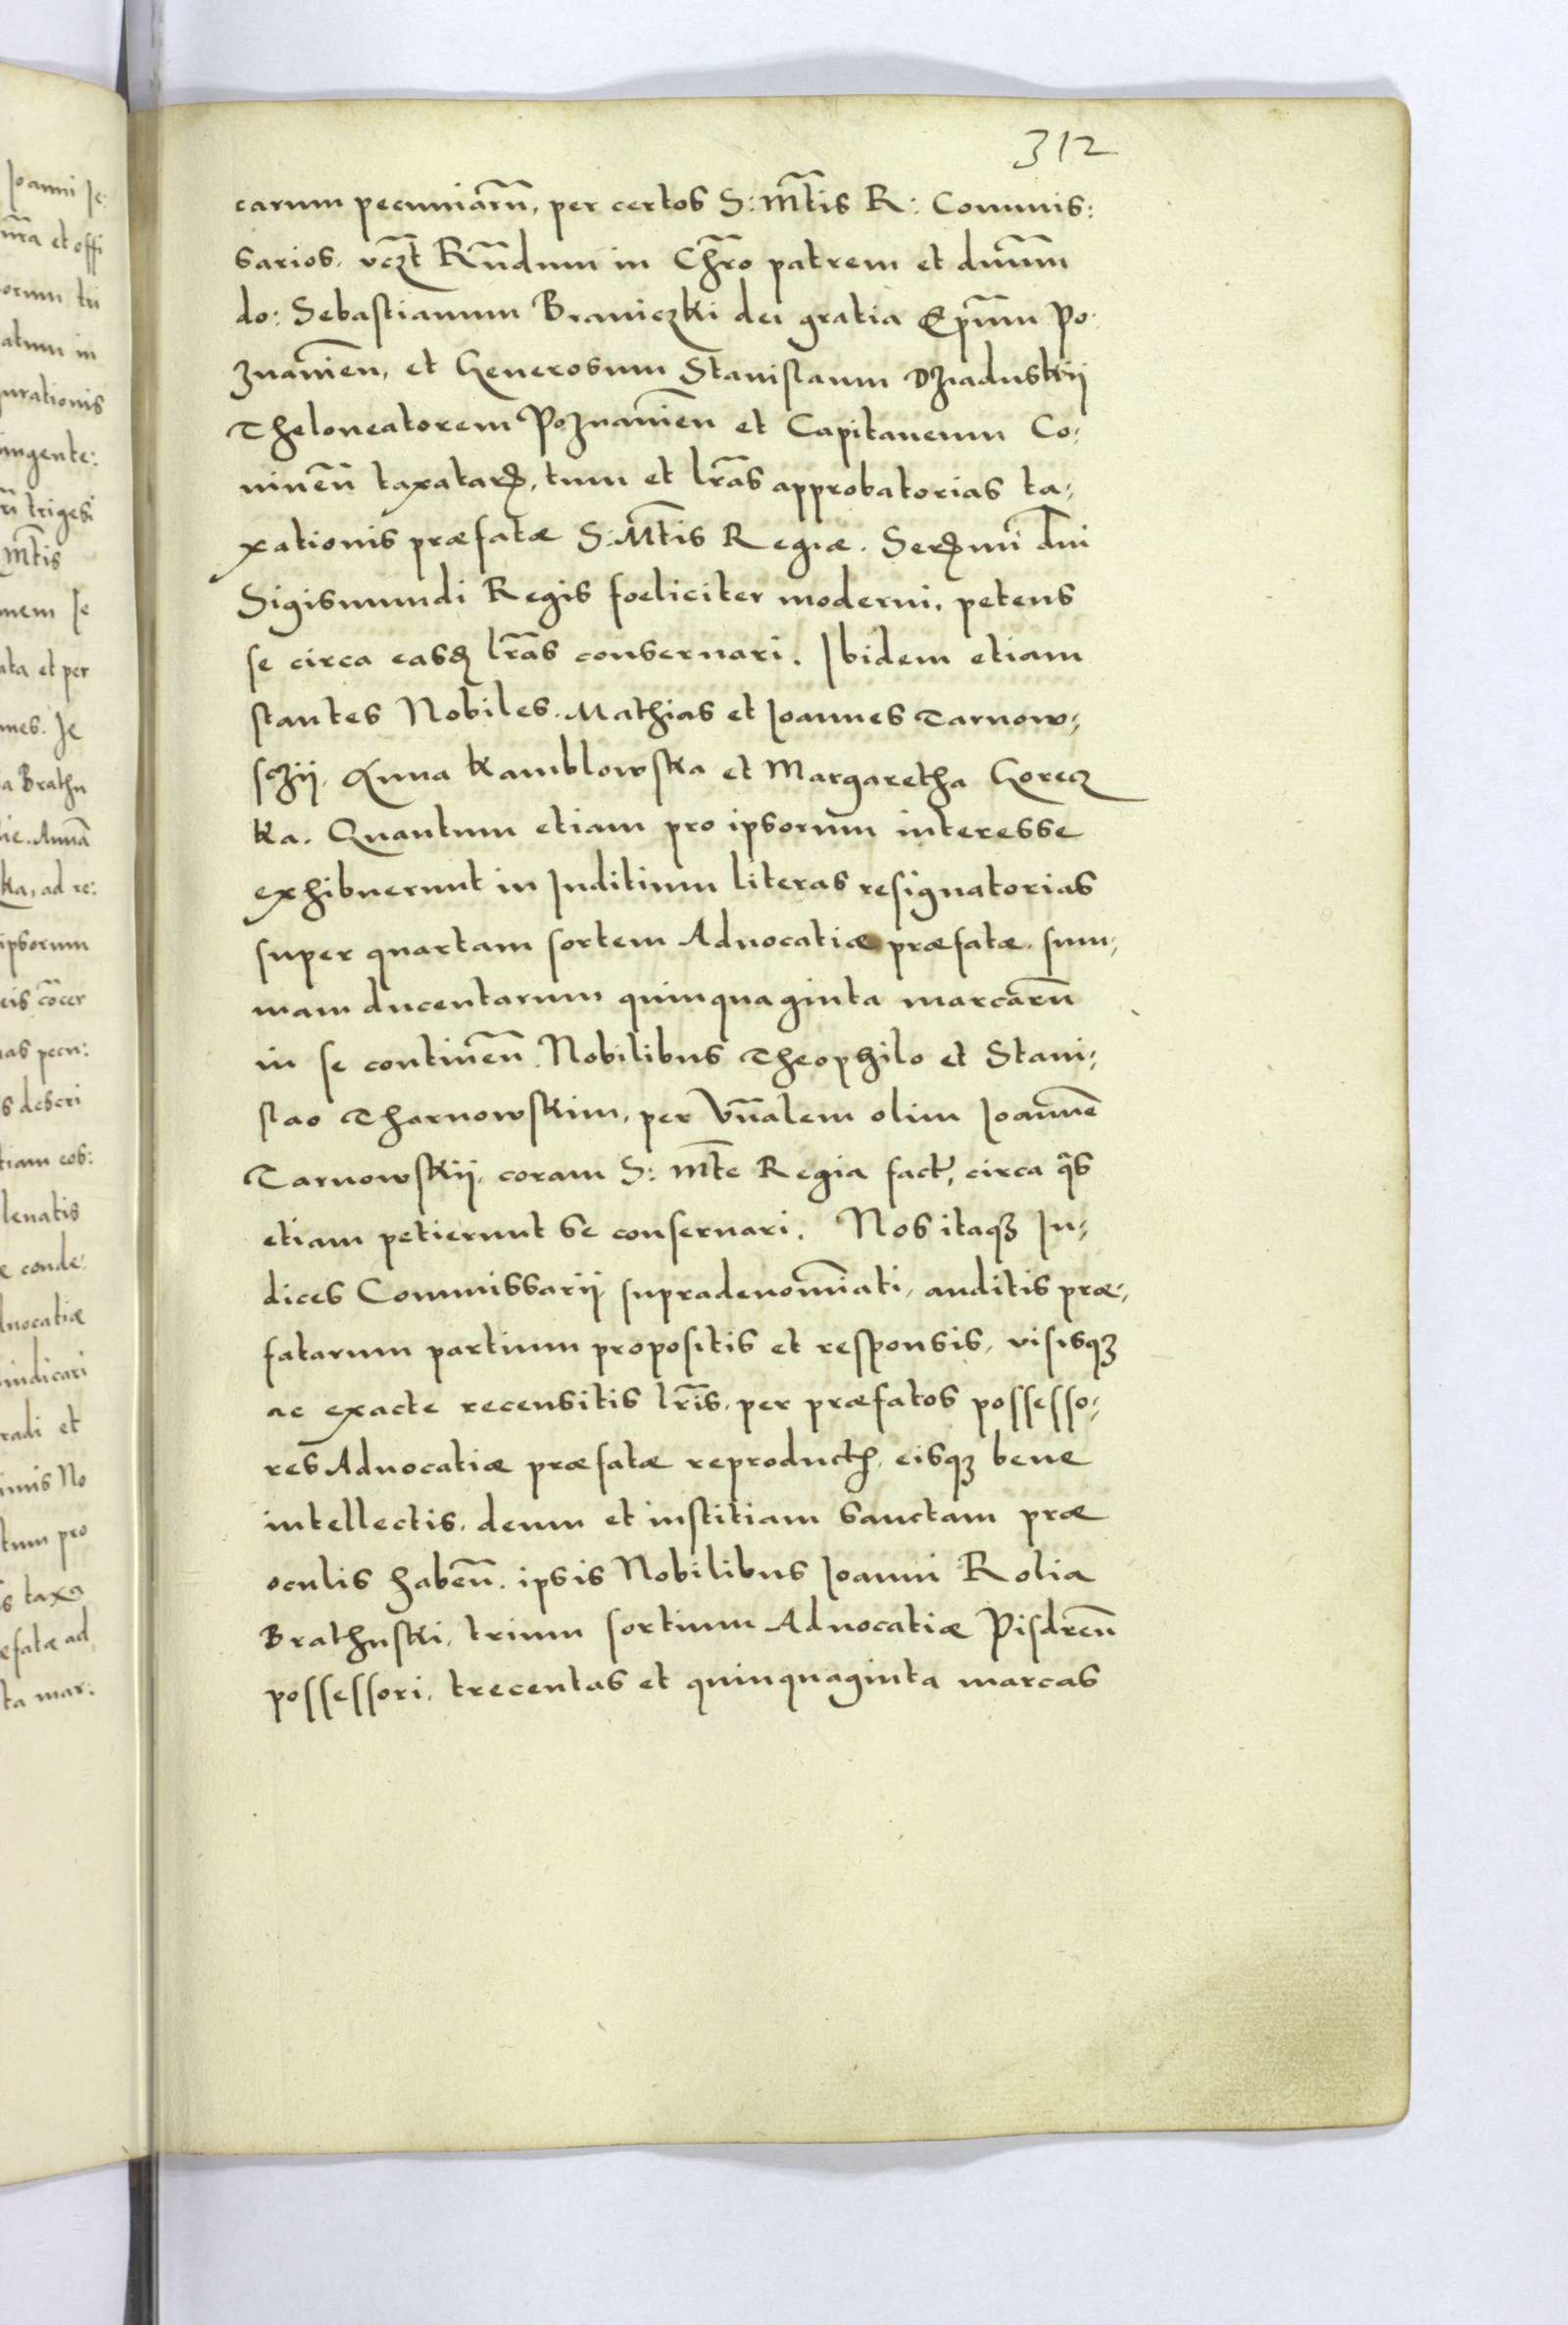 312
carum pecuniarũ, per certos S: Mtis R: Commis:
sarios, vczt Rñdum in Chro patrem et dnum
do: Sebastianum Braniczki dei gratia Epum Po:
znanien, et Generosum Stanislaum Dziaduskij
Theloneatorem Poznanien et Capitaneum Co:
ninen taxatarꝫ, tum et lras approbatorias ta:
xationis præfatæ S: Mtis Regiæ. Sermi dni
Sigismundi Regis foeliciter moderni, petens
se circa easdꝫ lras conseruari. Ibidem etiam
stantes Nobiles. Mathias et Joannes Tarnow:
sczij, Anna Kamblowska et Margaretha Gorecz
ka. Quantum etiam pro ipsorum interesse
exhibuerunt in Juditium literas resignatorias
super quartam sortem Aduocatiæ præfatæ, sum:
mam ducentarum quinquaginta marcarũ
in se continen. Nobilibus Theophilo et Stani:
slao Tharnowskim, per Vnalem olim Joannẽ
Tarnowskij, coram S: Mte Regia fact, circa qas
etiam petierunt se conseruari. Nos itaqꝫ Ju:
dices Commissarij supradenominati, auditis præ:
fatarum partium propositis et responsis, visisqꝫ
ac exacte recensitis lris, per præfatos possesso:
res Aduocatiæ præfatæ reproduct, eisqꝫ bene
intellectis, deum et iustitiam sanctam præ
oculis haben. ipsis Nobilibus Joanni Rolia
Brathuski, trium sortium Aduocatiæ Pisdren
possessori, trecentas et quinquaginta marcas